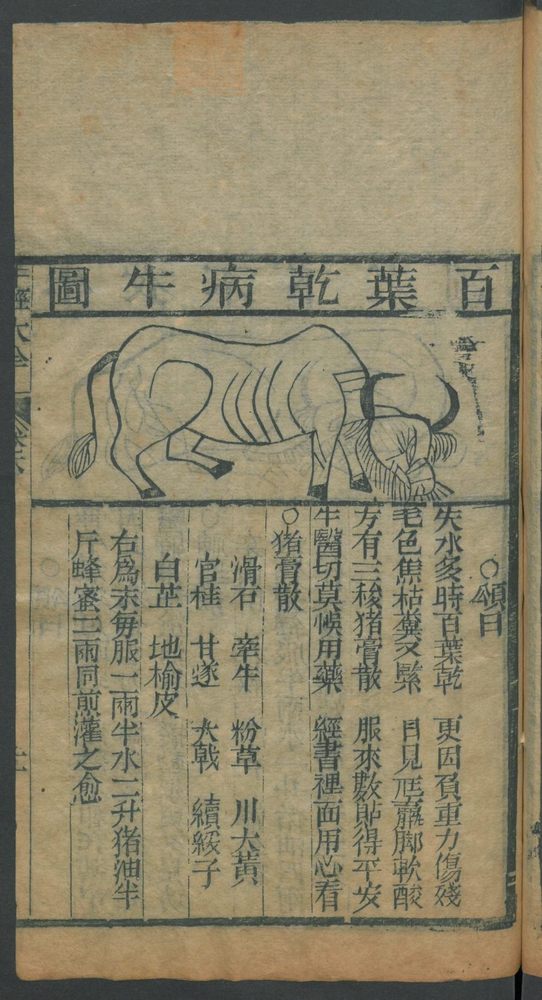 百葉乾病牛圖
○頌曰
失水多時百葉乾 更因負重力傷殘
毛色焦枯糞又緊 日見尫羸脚軟酸
方有三稜猪膏散 服來數貼得平安
牛醫切莫悞用藥 經書裡面用心看
○猪膏散
滑石 牽牛 粉草 川大黃
官桂 甘遂 大戟 續綏子
白芷 地榆皮
右爲末每服一兩半水二升猪油半
斤蜂蜜二兩同煎灌之愈